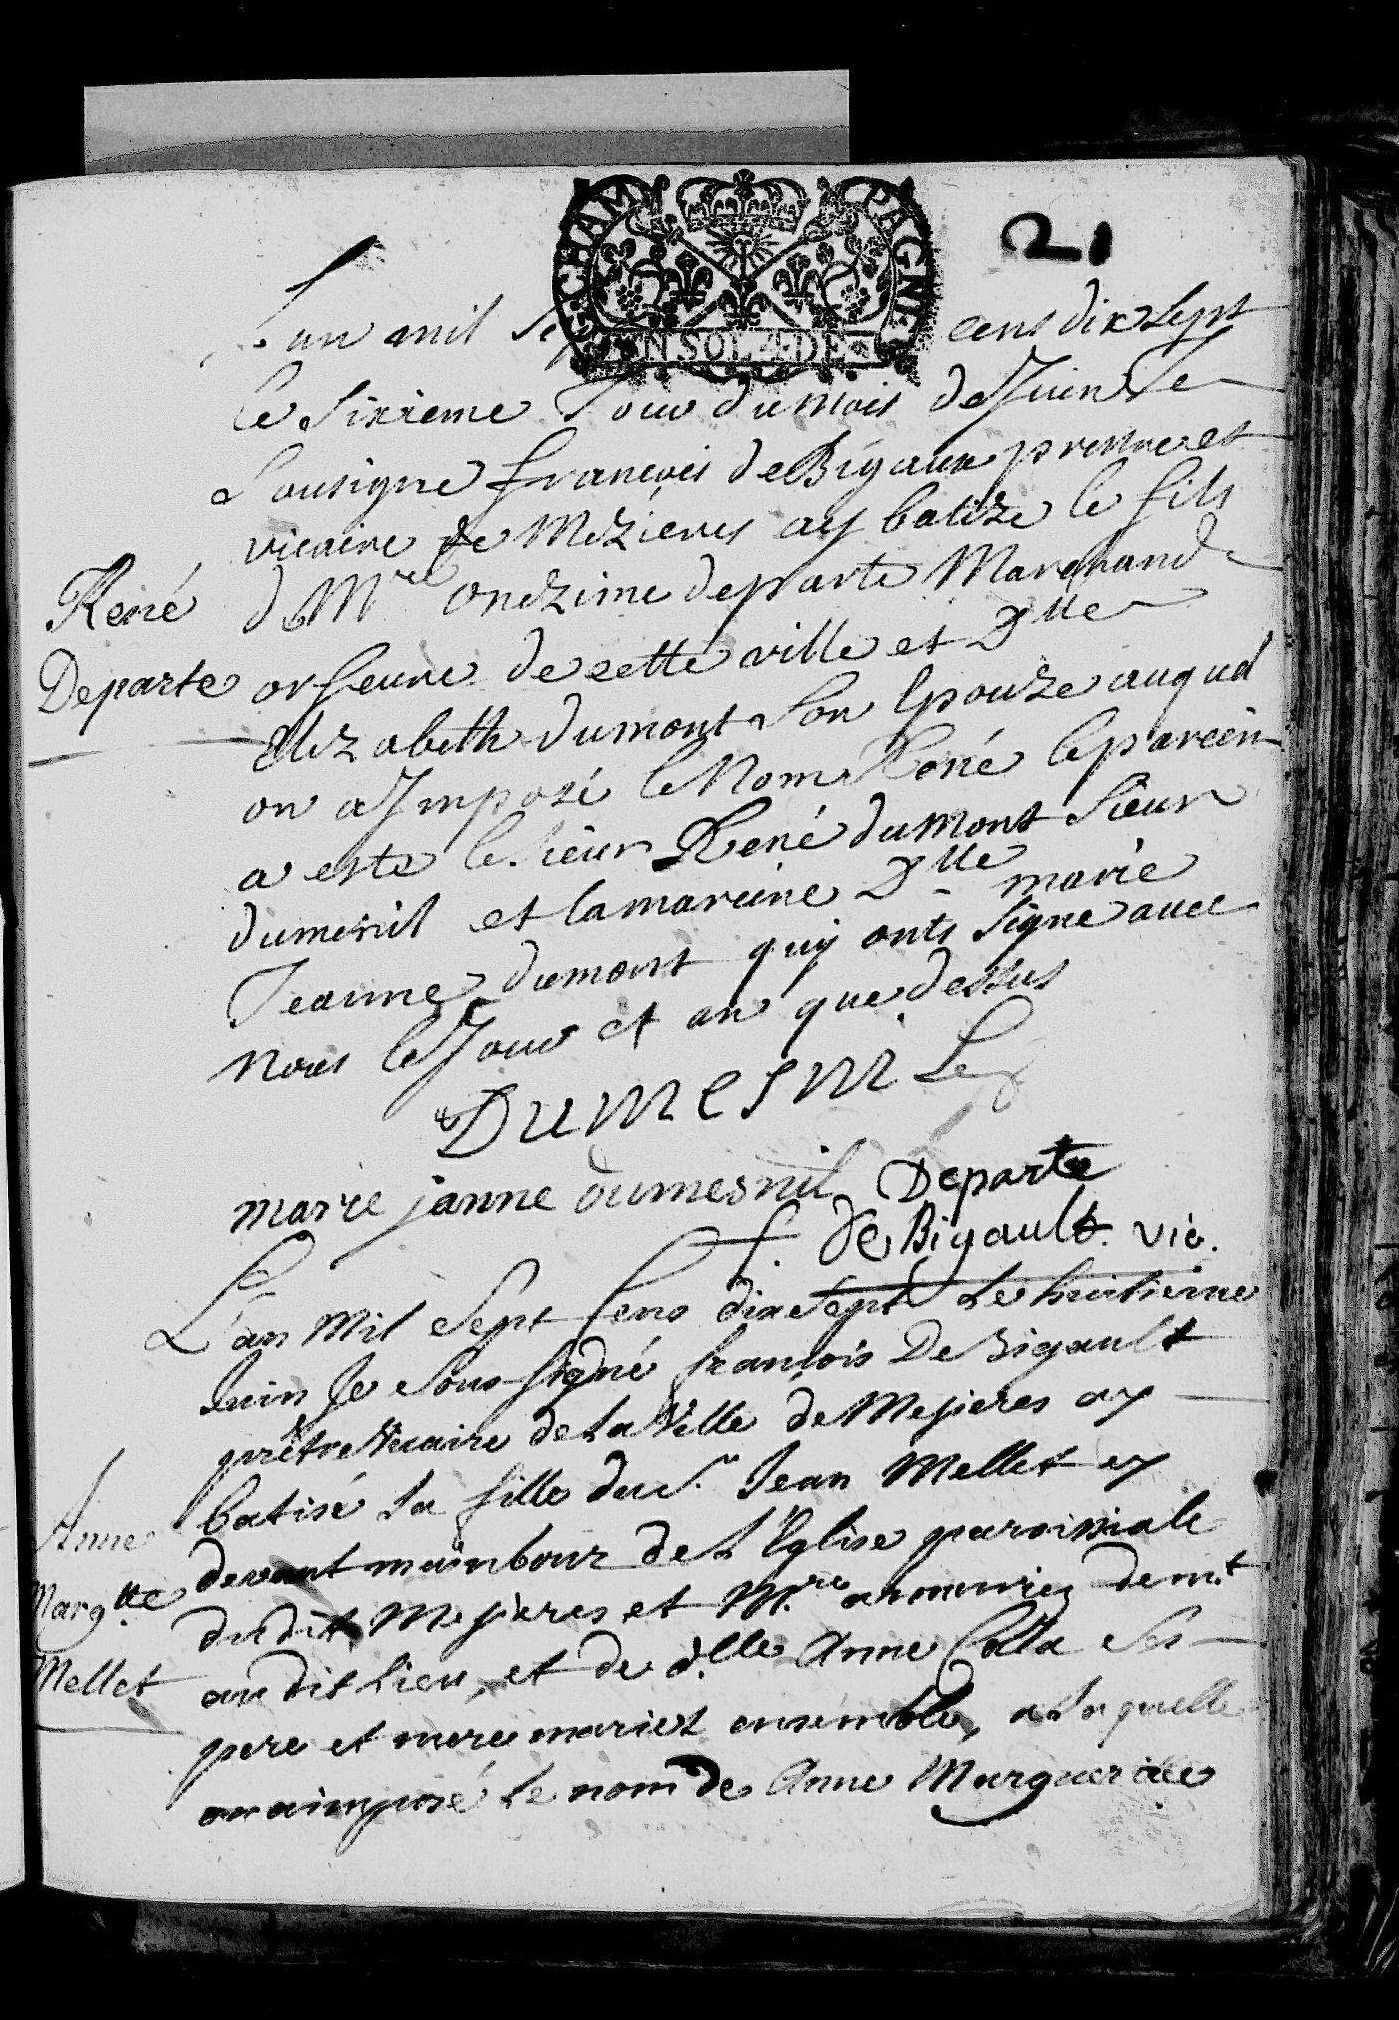 CHAMPAGNE
UN SOL 4 DE
21
L'an mil sept cens dix sept
le sixieme Jour du mois de Juin Je
sousigne francois de Bigaux prestre et
vicaire de Mezieres aÿ batize le fils
René
d Mre onezime departe Marchand
Departe
orfeure de cette ville et Dlle
Elizabeth dumont son Epouze auquel
on a Imposé le Nom René le parein
a este le sieur René dumont sieur
dumesnil et la mareine Dlle marie
Jeanne dumont quÿ onts signe avec
nous le Jour et an que dessus
DUMESNIL
marie janne dumesnil Departe
f. de Bigault. vic.
L'an Mil Sept Cens dix Sept Le huitieme
Juin Je Sous signé francois De Bigault
prêtre vicaire de La Ville de Mesieres ay
batisé La fille du Sr Jean Mellet cy
Anne
devant mainbour de L'Eglise paroissiale
Margtte
dudit Mesieres et Mre armurier demt
Mellet
audit Lieu, et de dlle Anne Ses
pere et mere mariez ensemble, a Laquelle
on a imposé Le nom de Anne Marguerite